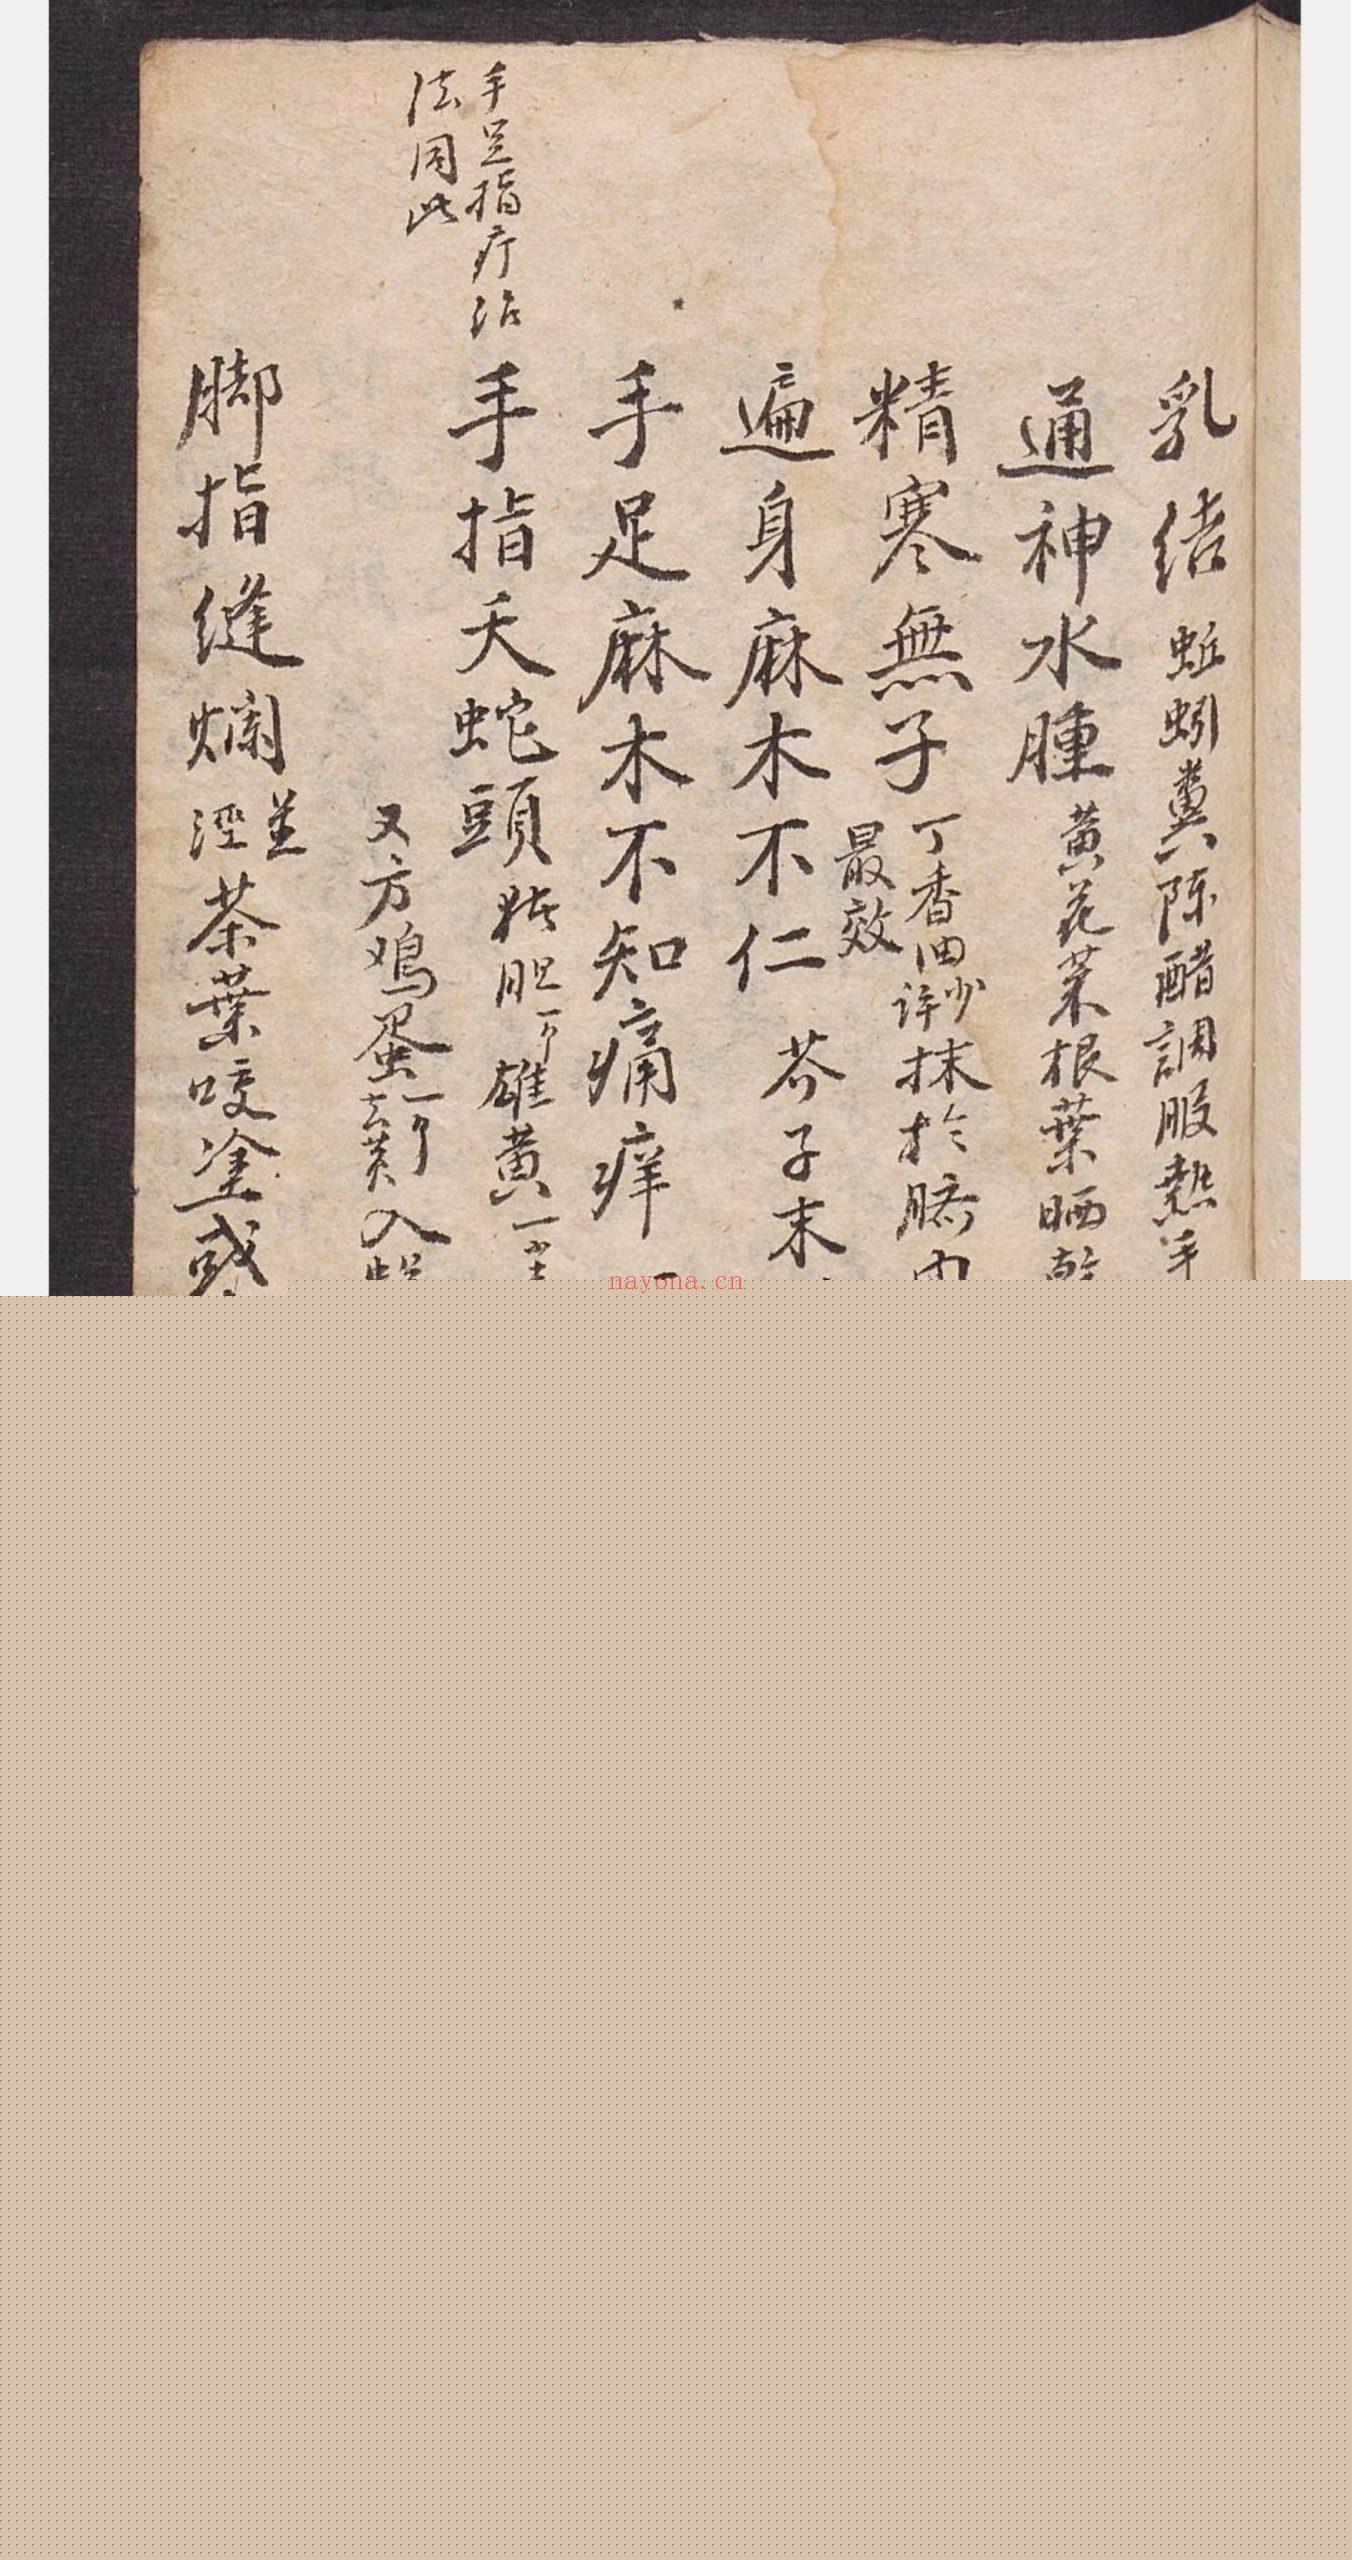 乳结 蚯蚓糞陈醋調服熱手
通神水腫 黄花菜根葉晒乾
精寒無子 丁香油少许抹於臍内
最效
遍身麻木不仁 芥子末
手足麻木不知痛痒
手足指疔治
法同此
手指天蛇頭 猪胆一个雄黄一
又方鸡蛋一个去黄入
脚指缝爛並溼茶葉咬塗或
nayona.cn